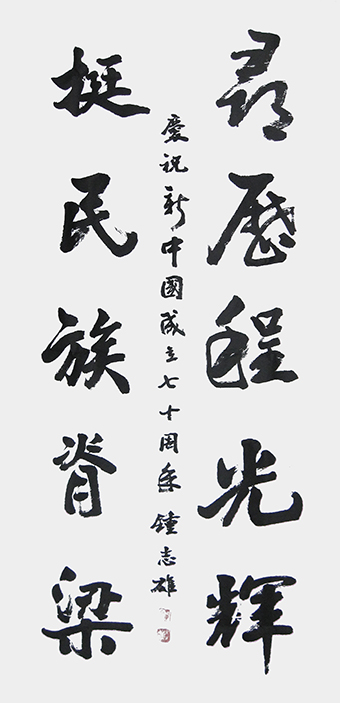 尋歷程光輝
挺民族脊梁
慶祝新中國成立七十周年 鍾志雄